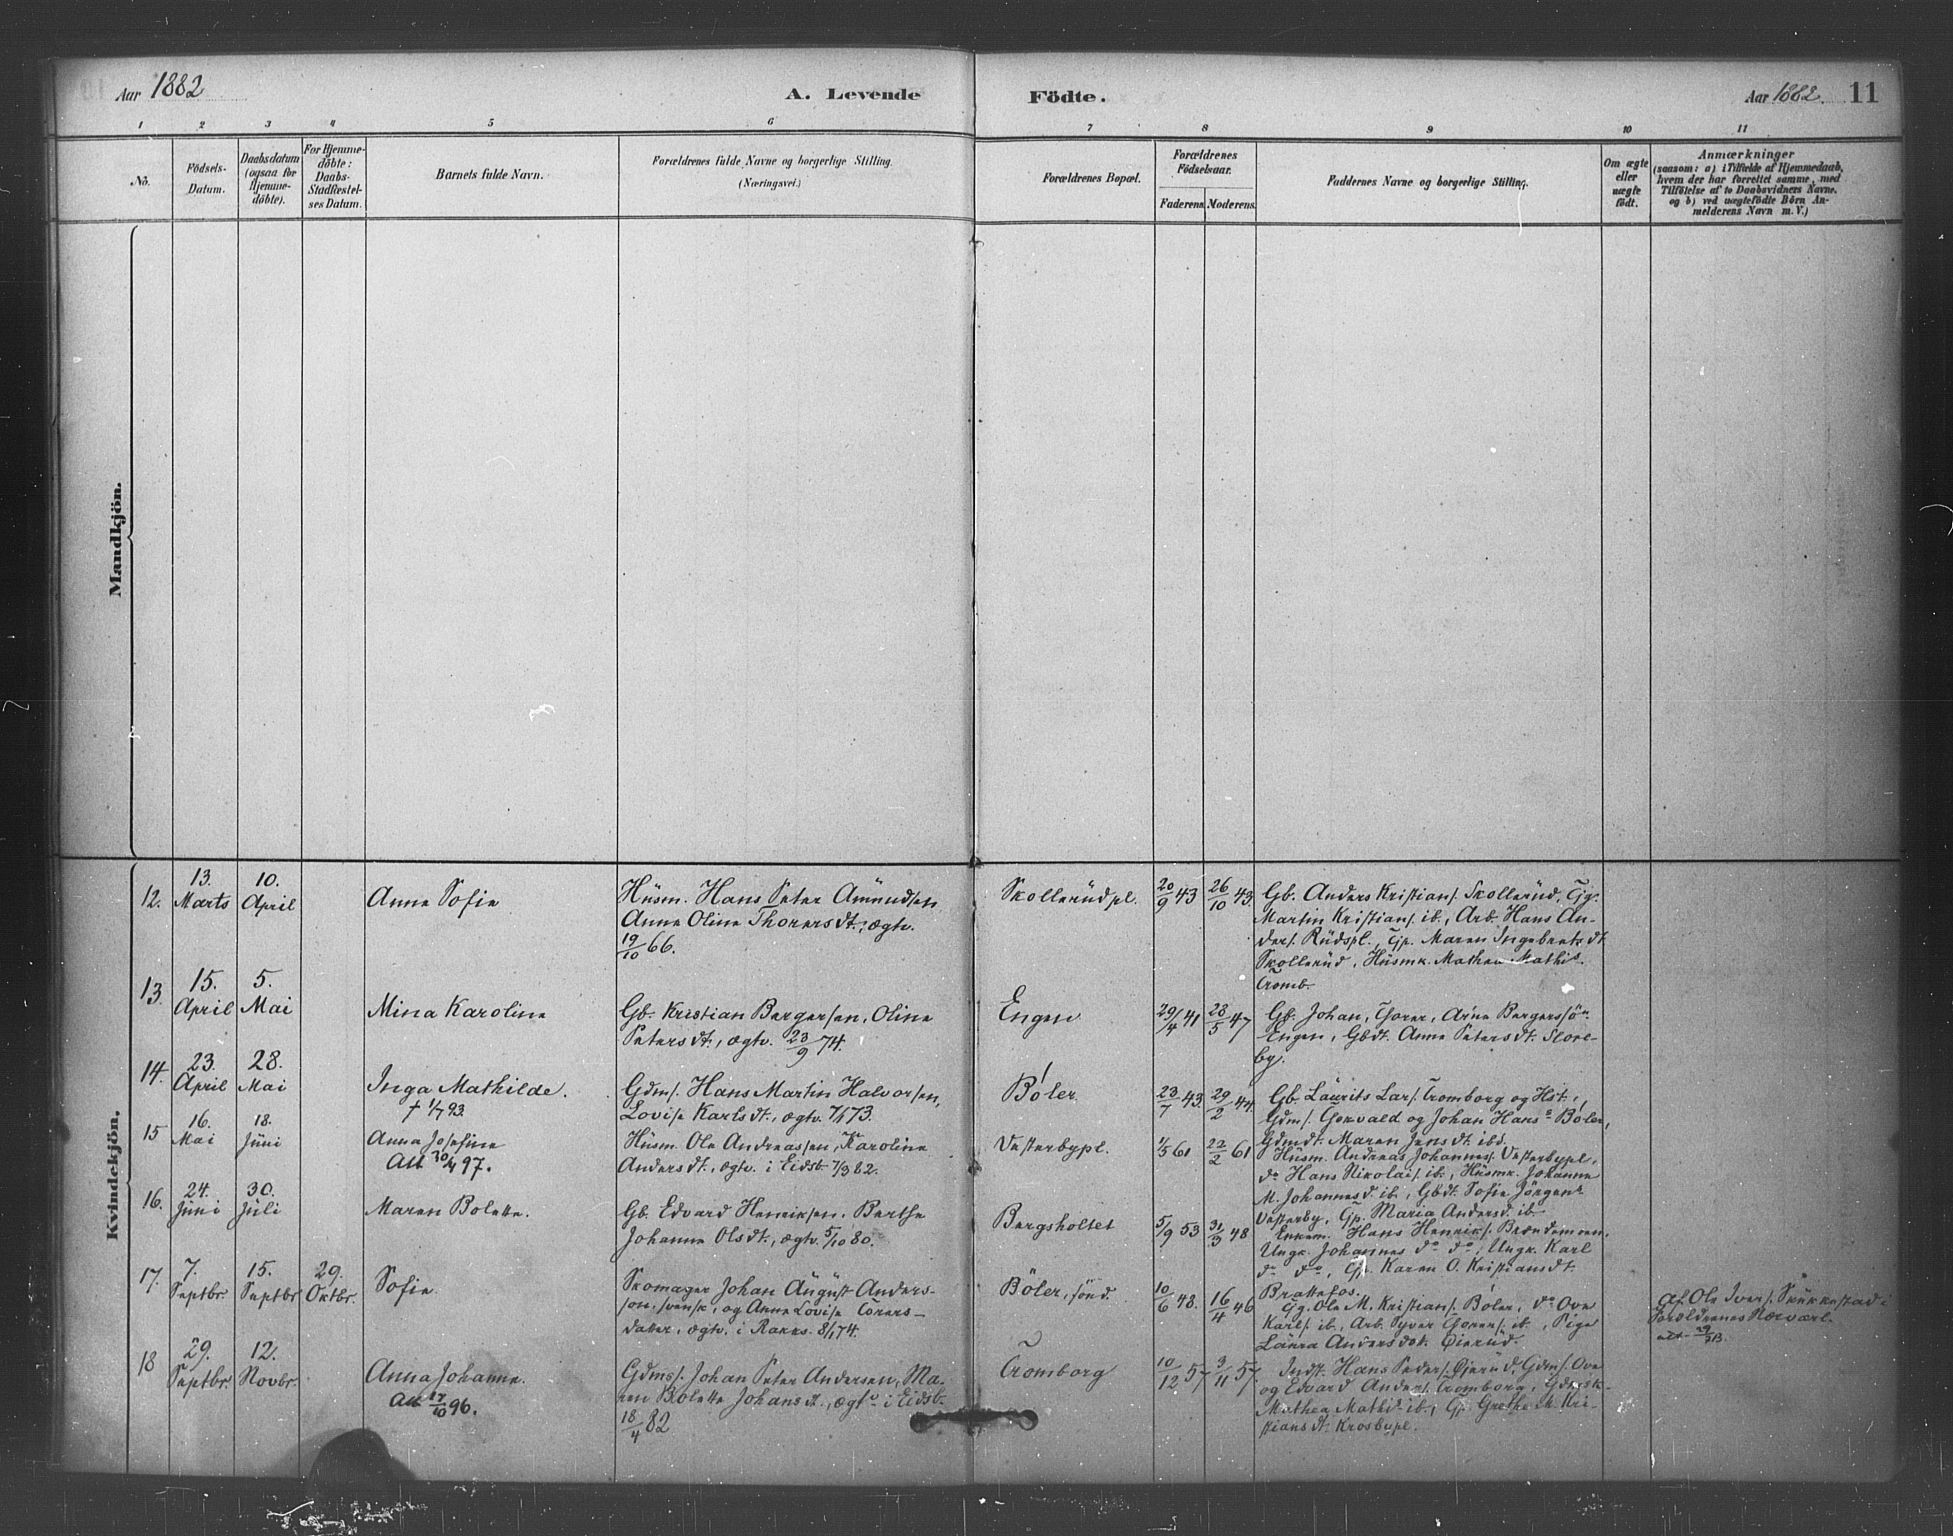 Aar 1882
A. Levende
Födte.
Aar 1882. 11
1 2 3 4 5 6 7 8 9 10 11
No.
Födsels-
Datum.
Daabsdatum
(ogsaa for
Hjemme-
döbte).
For Hjemme-
döbte:
Daabs-
Stadfæstel-
ses Datum.
Barnets fulde Navn.
Forældrenes fulde Navne og borgerlige Stilling.
(Næringsvei.)
Forældrenes Bopæl.
Forældrenes
Födselsaar.
Faderens. Moderens.
Faddernes Navne og borgerlige Stilling.
Om ægte
eller
uægte
födt.
Anmærkninger
(saasom: a) i Tilfælde af Hjemmedaab,
hvem der har forrettet samme, med
Tilföielse af to Daabsvidners Navne.
og b) ved uægtefödte Börn An-
melderens Navn m. V.)
Mandkjön.
Kvindekjön.
12. 13. Marts 10. April
Anne Sofie
Húsm. Hans Peter Amúndsen
Anne Oline Thorersdt., ægtv.
19/10 66.
Skollerúdpl.
20/9 43 26/10 43.
Gb. Anders Kristians. Skollerúd, Gg.
Martin Kristians. ib., Arb. Hans An-
ders. Rúdspl., Gp. Maren Ingebretsdt.
Skollerúd, Húsmk. Mathea Mathis.
Tromb.
13. 15. April 5. Mai
Mina Karoline
Gb. Kristian Bergersen, Oline
Petersdt., ægtv. 23/9 74.
Engen
29/4 41 28/5 47
Gb. Johan, Torer, Arne Bergerssön
Engen, Gbdt. Anne Petersdt. Slore-
by.
14. 23. April 28. Mai
Inga Mathilde.
† 1/7 93
Gdms. Hans Martin Halvorsen,
Lovise Karlsdt., ægtv. 7/1 73.
Böler.
23/7 43. 29/2 44.
Gb. Laúrits Lars. Tromborg og Hst.,
Gdms. Torvald og Johan Hans. Böler,
Gdmdt. Maren Jensdt. ibd.
15 16. Mai 18. Júni
Anna Josefine
Att 30/4 97.
Húsm. Ole Andreassen, Karoline
Andersdt., ægtv. i Eidsb. 7/3 82.
Vesterbypl.
1/5 61 22/2 61
Húsm. Andreas Johannes. Vesterbypl.,
do Hans Nikolais. ib., Húsmk. Johanne
M. Johannesd. ib., Gbdt. Sofie Jörgens.
Vesterby, Gp. Maria Andersd. ib.
16. 24. Júni 30. Júli
Maren Bolette.
Gb. Edvard Henriksen, Berthe
Johanne Olsdt., ægtv. 5/10 80.
Bergsholtet
5/9 53 31/3 48
Enkem. Hans Henriks. Brændemoen,
Ungk. Johannes do do, Ungk. Karl
do do, Gp. Karen O. Kristiansdt.
Brattefos.
17. 7. Septbr. 15. Septbr. 29. Oktbr.
Sofie
Skomager Johan Aúgúst Anders-
son, svensk, og Anne Lovise Torers-
datter, ægtv. i Rakks. 8/1 74.
Böler, sönd.
10/6 48. 16/4 46
Gg. Ole M. Kristians. Böler, do Ove
Karls. ib., Arb. Syver Torers. ib., Pige
Laúra Andersdat. Öierúd.
Af Ole Ivers. Skúkkestad i
Foreldrenes Nærvær.
18 29. Septbr. 12. Novbr.
Anna Johanne.
Att 17/10 96.
Gdms. Johan Peter Andersen, Ma-
ren Bolette Johansdt., ægtv i Eidsb.
18/4 82
Tromborg
10/12 57 3/11 57
Indst. Hans Peders. Öierúd, Gdms. Ove
og Edvard Anders. Tromborg, Gdmsk.
Mathea Mathis. ib., Gp. Grethe M. Kri-
stiansdt. Krosbypl.